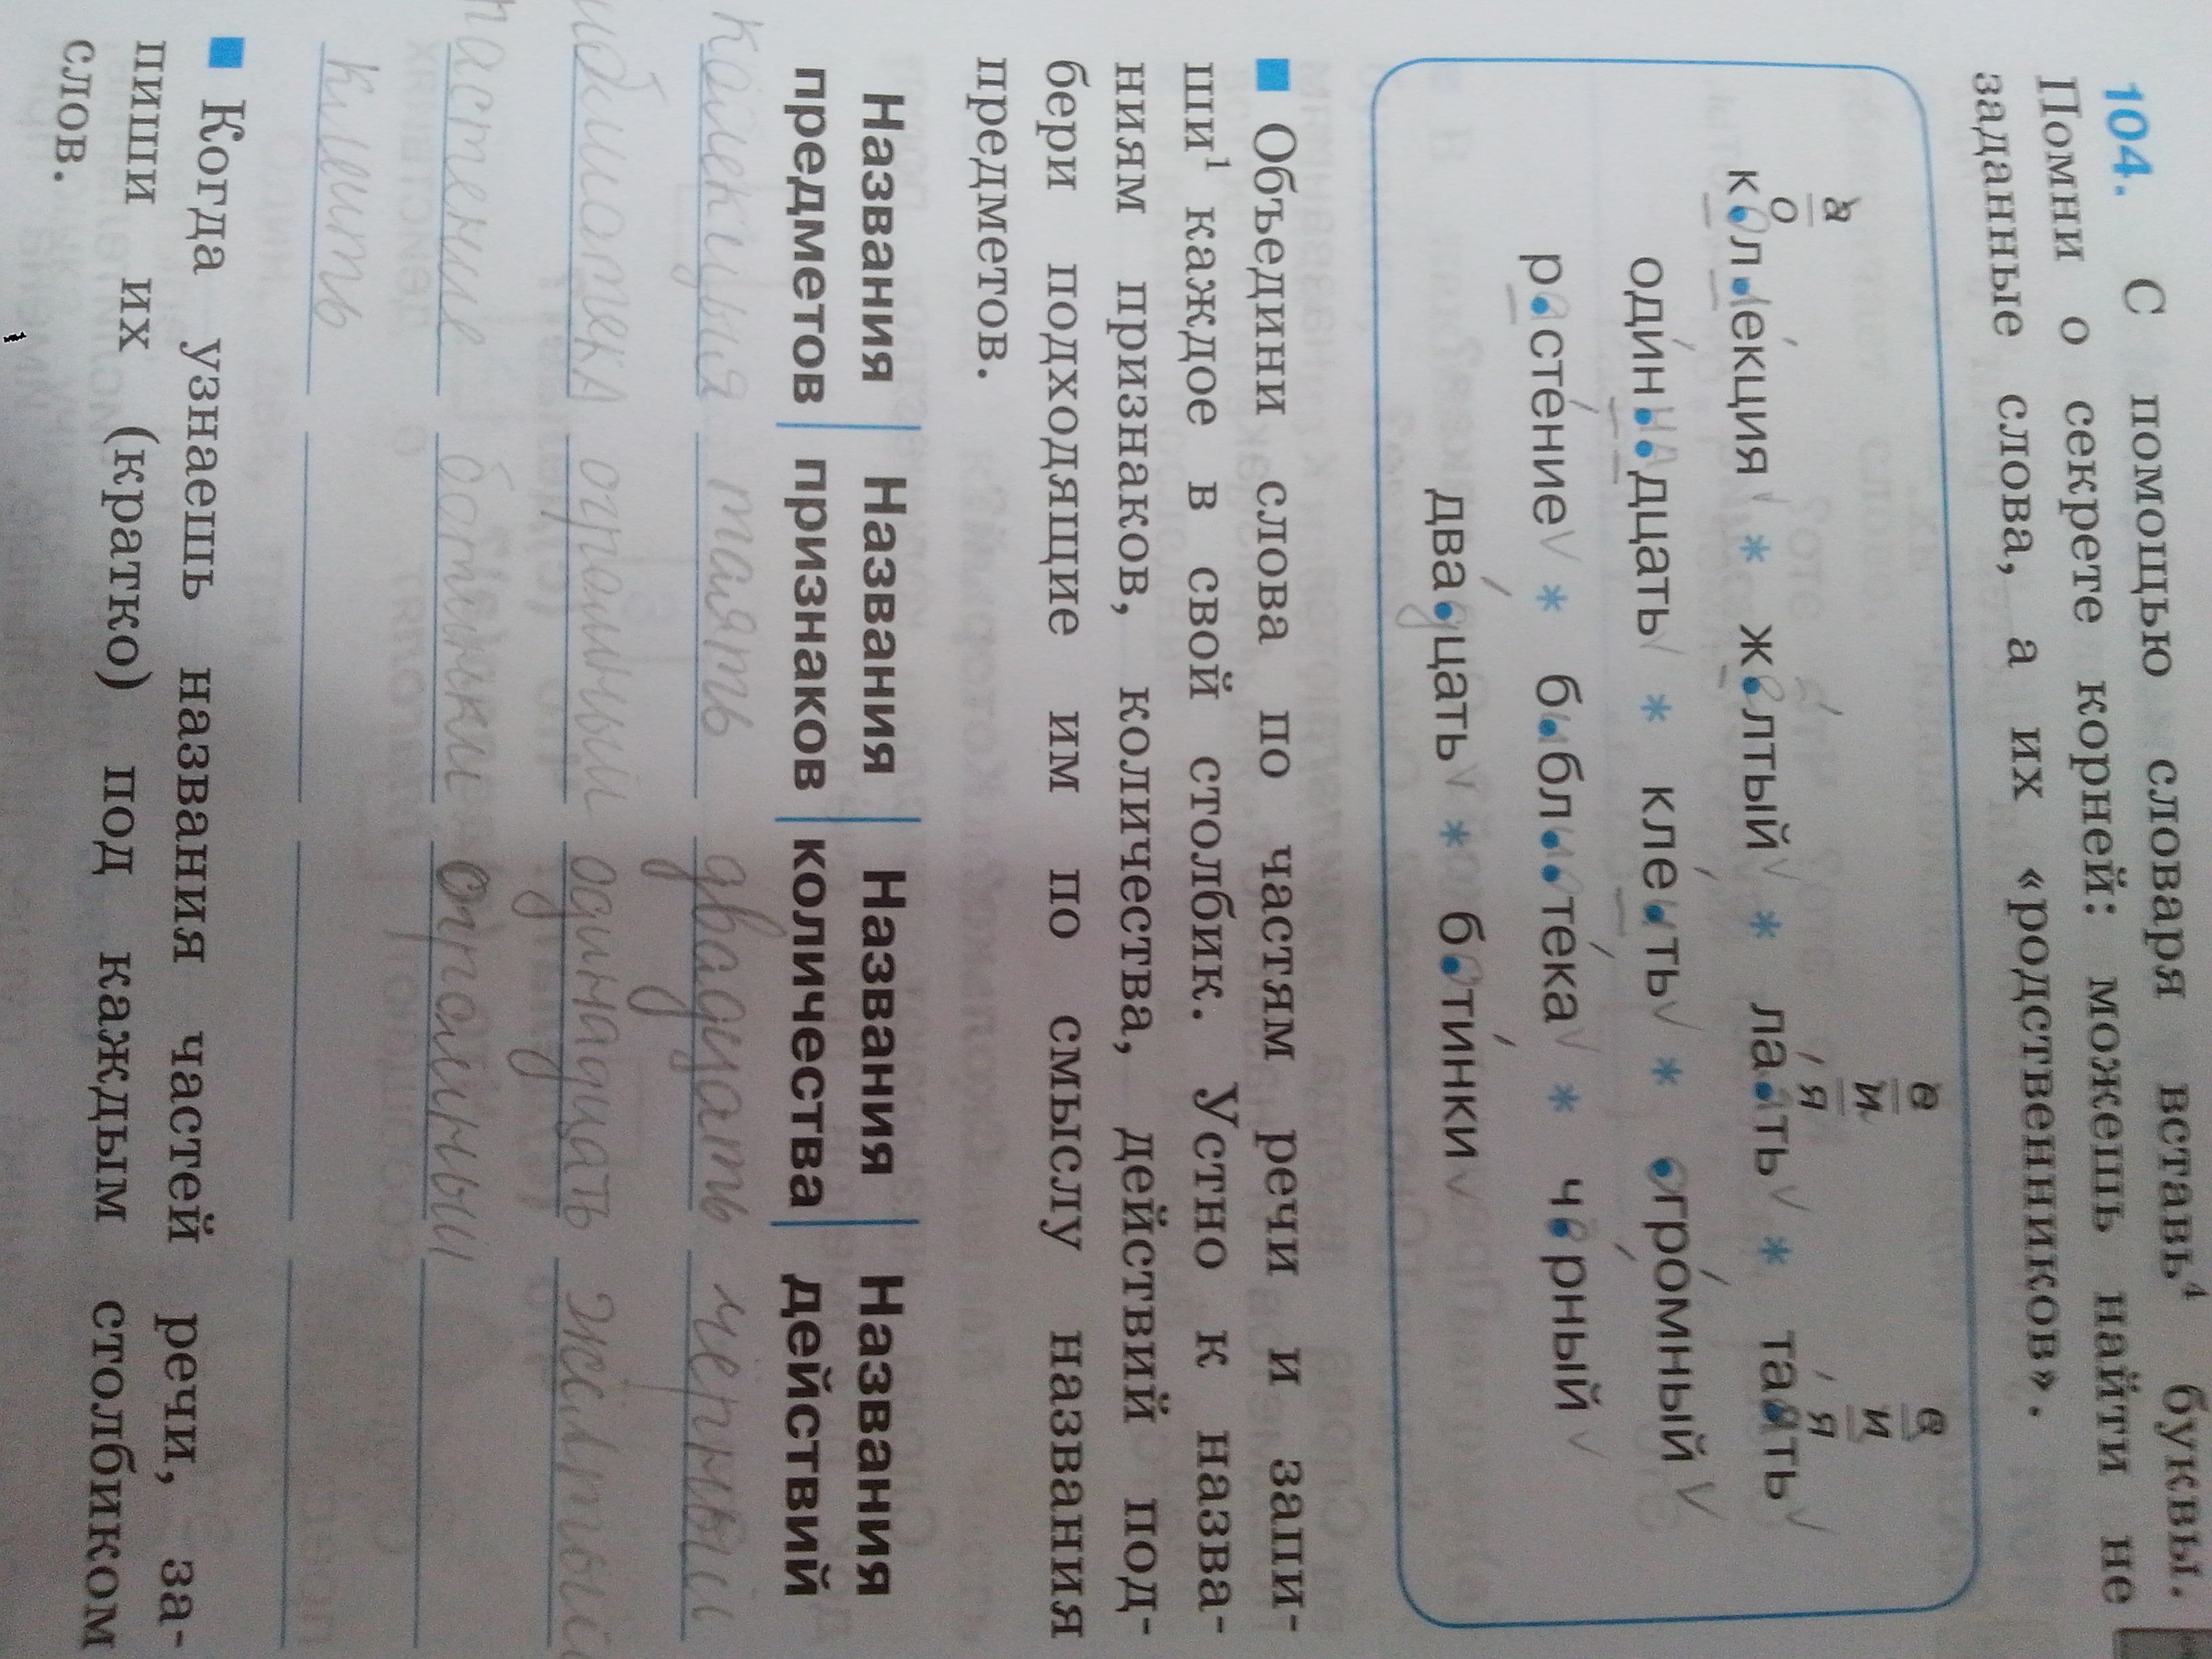 104. С помощью словаря вставь⁴ буквы.
Помни о секрете корней: можешь найти не
заданные слова, а их «родственников».
а е е
и и
о я я
кол.лекция ∨ * желтый ∨ * лаять ∨ * таять ∨
одиннадцать ∨ * клеить ∨ * огромный ∨
растение ∨ * библиотека ∨ * чёрный ∨
двадцать ∨ * ботинки ∨
Объедини слова по частям речи и запи-
ши¹ каждое в свой столбик. Устно к назва-
ниям признаков, количества, действий под-
бери подходящие им по смыслу названия
предметов.
Названия | Названия | Названия | Названия
предметов | признаков | количества | действий
калекцыя таять двадцать чёрный
библиотека огромный одинадцать желтый
растение ботинки огромный
клеить
Когда узнаешь названия частей речи, за-
пиши их (кратко) под каждым столбиком
слов.